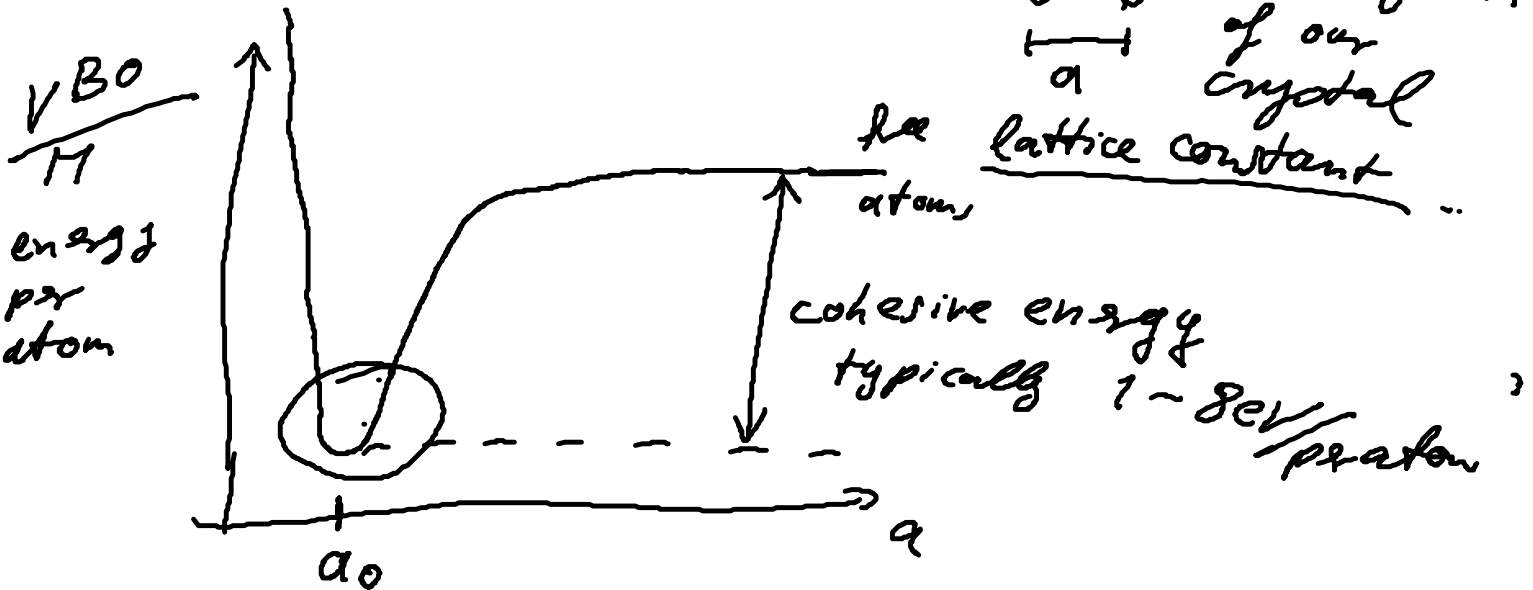 of our
crystal
a
lattice constant ..
V^BO / M
energy
per
atom
free
atoms
cohesive energy
typically 1 ~ 8 eV/per atom
a
a₀